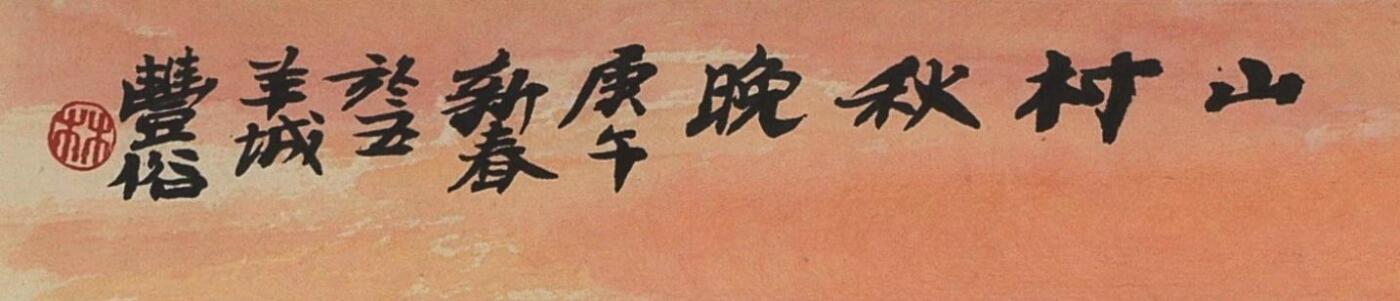 山村秋晚
庚午
新春
於五
羊城
豐俗
林